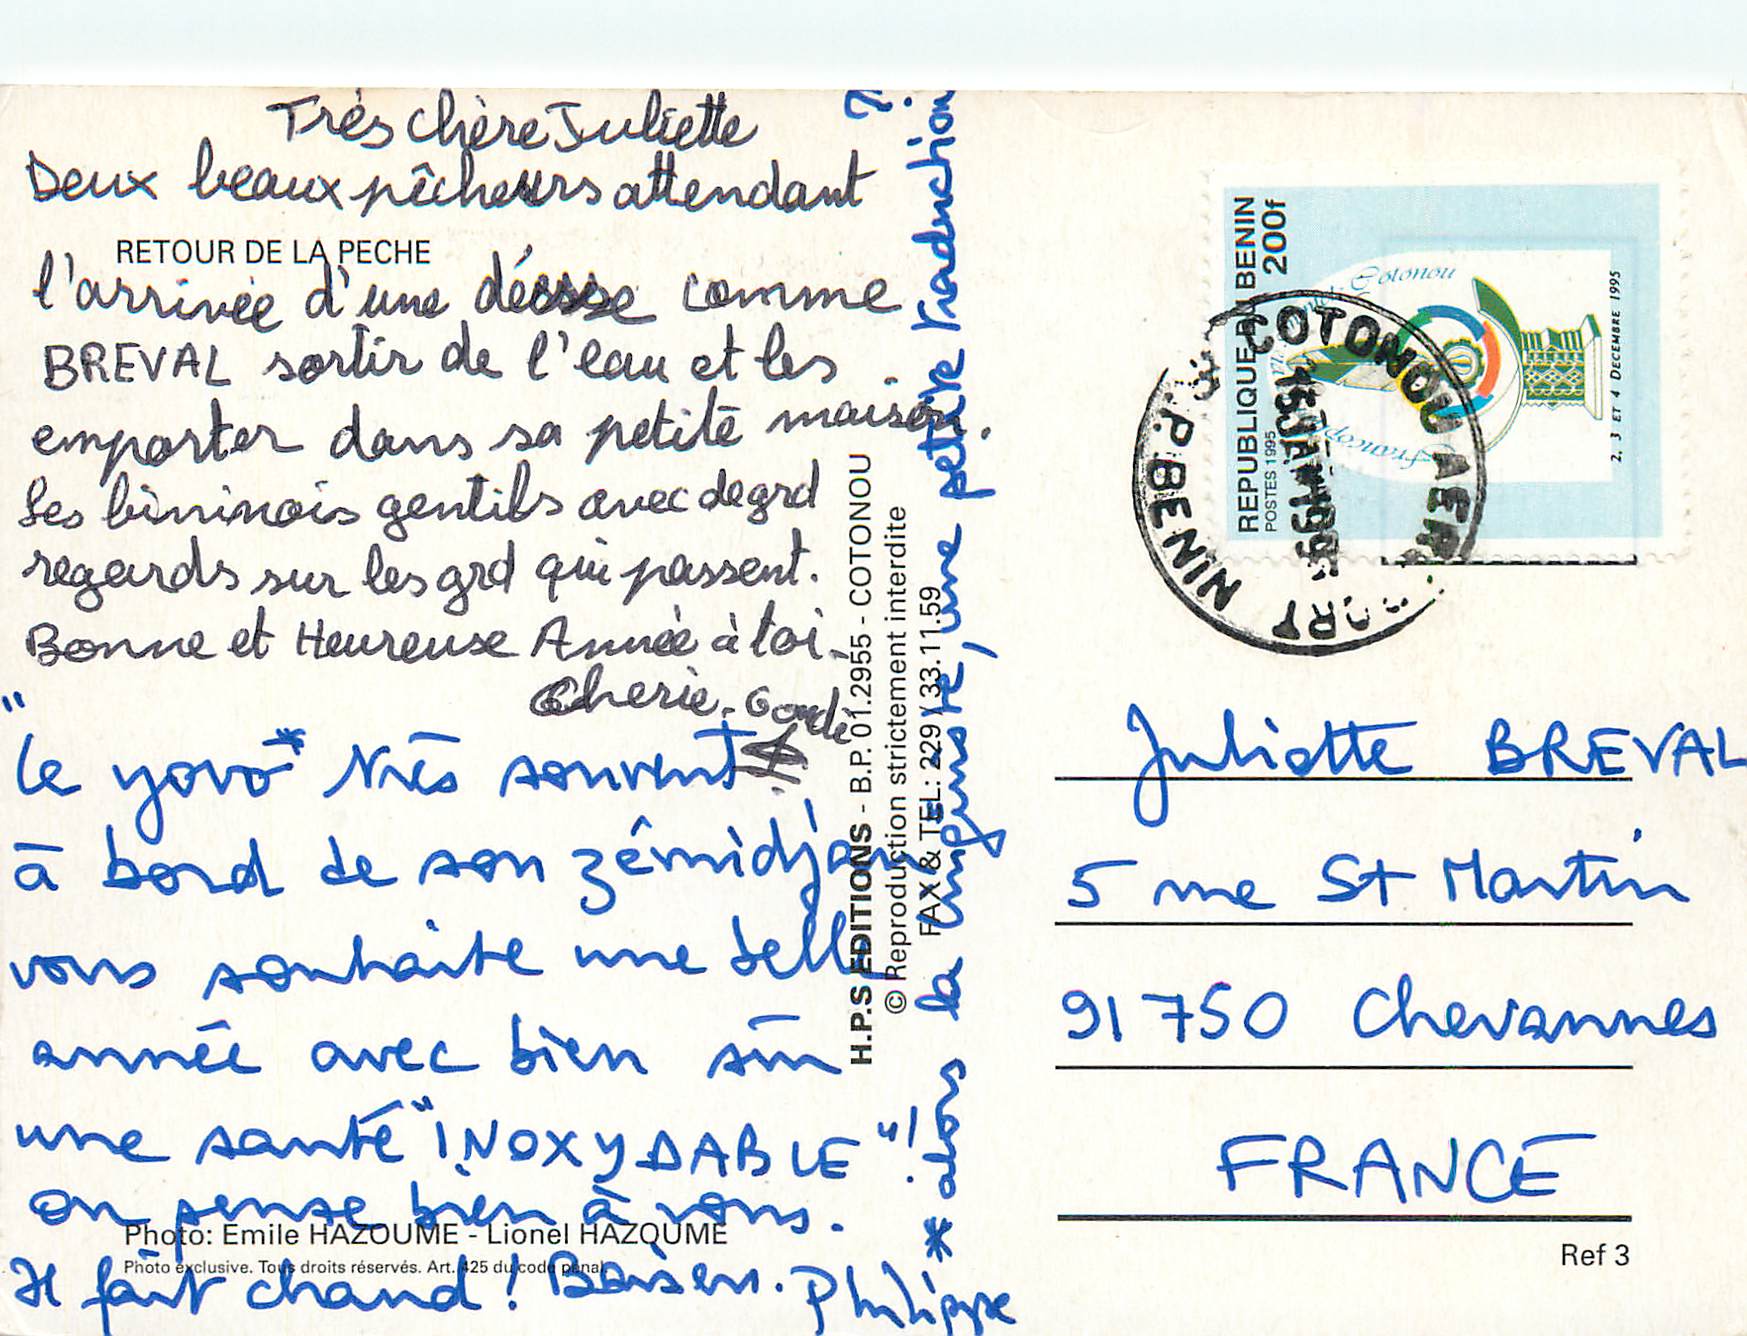 Très chère Juliette
Deux beaux pêcheurs attendant
RETOUR DE LA PECHE
l'arrivée d'une déesse comme
BREVAL sortir de l'eau et les
emporter dans sa petite maison.
Les béninois gentils avec de grd
regards sur les grd qui passent.
Bonne et Heureuse Année à toi
Cherie.
"Le yovo* très souvent
à bord de son zémidjan
vous souhaite une belle
année avec bien sûr
une santé "INOXYDABLE"!
on pense bien à vous.
Photo: Emile HAZOUME - Lionel HAZOUME
Photo exclusive. Tous droits réservés. Art. 425 du code pénal
Il fait chaud ! Baisers. Philippe
H.P.S EDITIONS - B.P. 01.2955 - COTONOU
© Reproduction strictement interdite
FAX & TEL: 229 / 33.11.59
* alors la linguiste, une petite traduction ?
REPUBLIQUE DU BENIN 200f
POSTES 1995
Cotonou
2, 3 ET 4 DECEMBRE 1995
COTONOU AEROPORT
R.P. BENIN
Juliette BREVAL
5 rue St Martin
91750 Chevannes
FRANCE
Ref 3